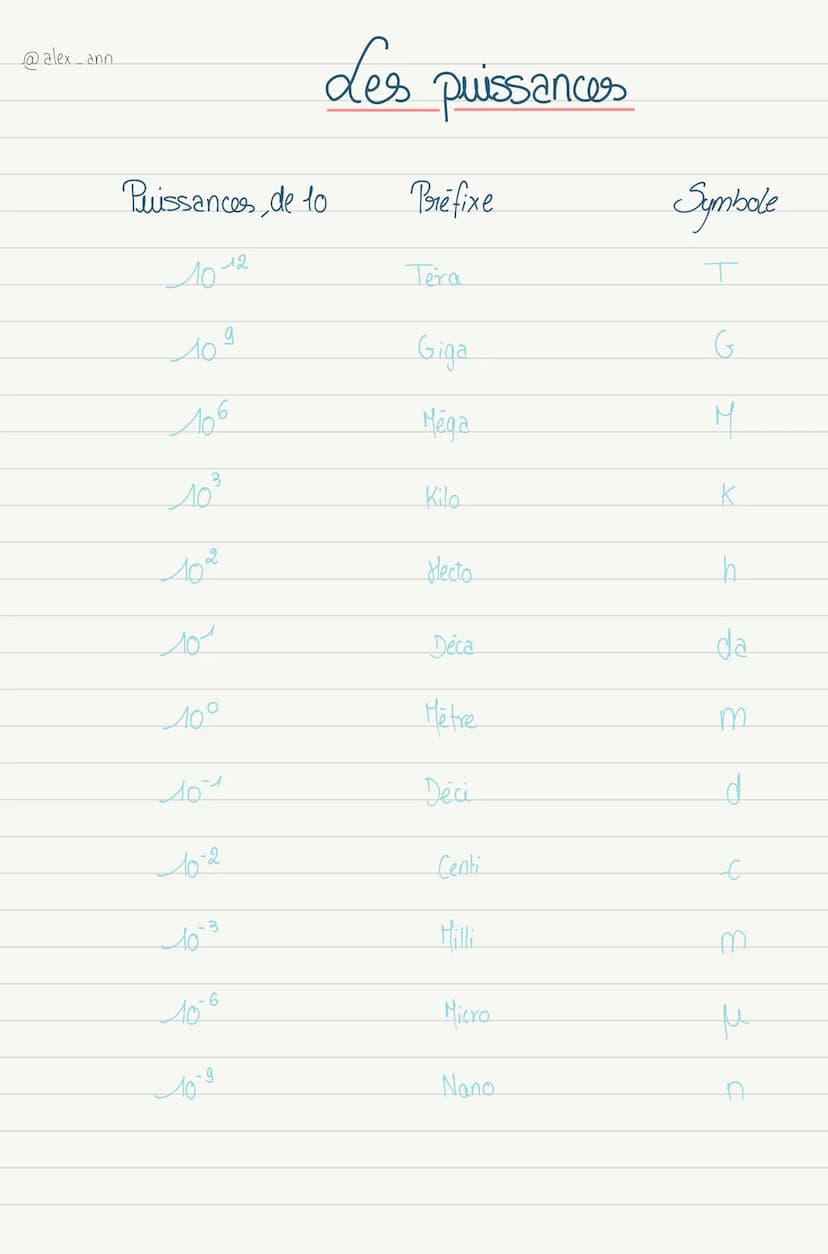 @alex_ann
Les puissances
Puissances de 10 Préfixe Symbole
10¹² Téra T
10⁹ Giga G
10⁶ Méga M
10³ Kilo K
10² Hecto h
10¹ Déca da
10⁰ Mètre m
10⁻¹ Déci d
10⁻² Centi c
10⁻³ Milli m
10⁻⁶ Micro μ
10⁻⁹ Nano n